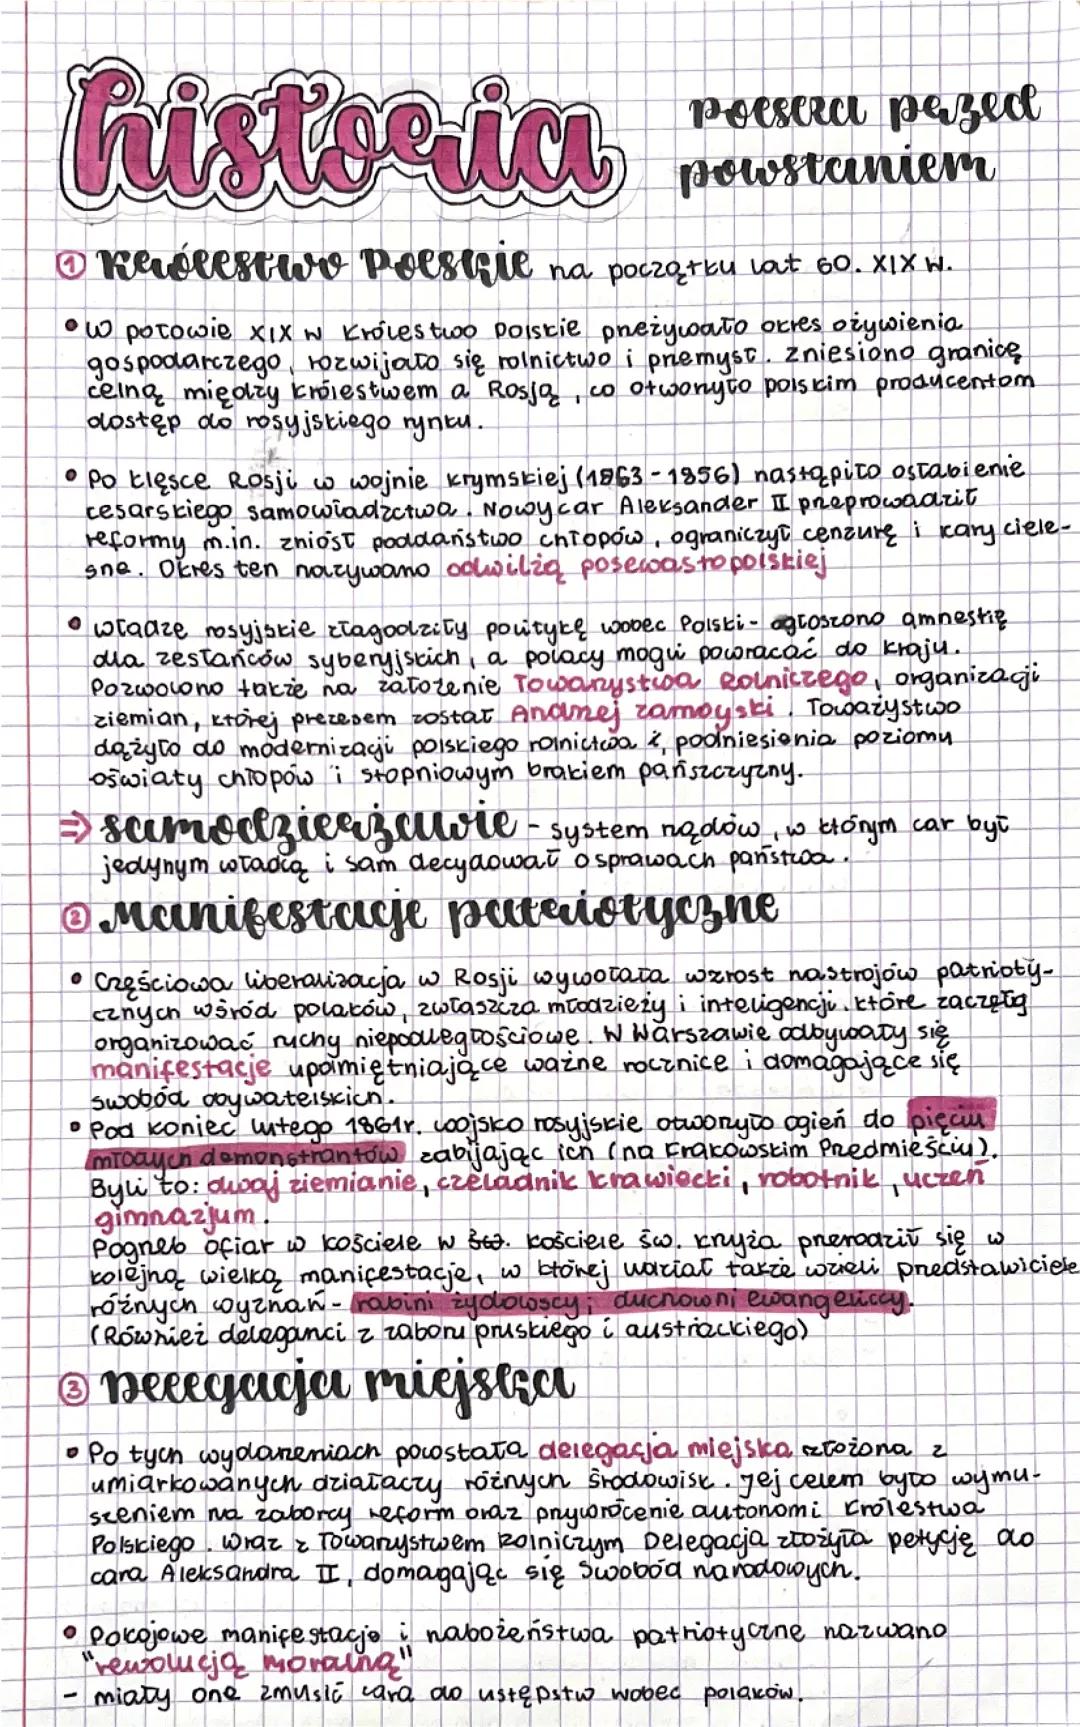 historia
polska przed
powstaniem
① Królestwo Polskie na początku lat 60. XIX w.
• W połowie XIX w Królestwo Polskie przeżywało okres ożywienia
gospodarczego, rozwijało się rolnictwo i przemysł. Zniesiono granicę
celną między królestwem a Rosją, co otworzyło polskim producentom
dostęp do rosyjskiego rynku.
• Po klęsce Rosji w wojnie krymskiej (1863-1856) nastąpiło osłabienie
cesarskiego samowładztwa. Nowy car Aleksander II przeprowadził
reformy m.in. zniósł poddaństwo chłopów, ograniczył cenzurę i kary ciele-
sne. Okres ten nazywano odwilżą posewastopolskiej
• Władze rosyjskie złagodziły politykę wobec Polski - ogłoszono amnestię
dla zesłańców syberyjskich, a polacy mogli powracać do kraju.
Pozwolono także na założenie Towarzystwa Rolniczego, organizacji
ziemian, której prezesem został Andrzej Zamoyski. Toważystwo
dążyło do modernizacji polskiego rolnictwa i, podniesienia poziomu
oświaty chłopów i stopniowym brakiem pańszczyzny.
⇒ samodzierżawie - system rządów, w którym car był
jedynym władcą i sam decydował o sprawach państwa.
② Manifestacje patriotyczne
• Częściowa liberalizacja w Rosji wywołała wzrost nastrojów patrioty-
cznych wśród polaków, zwłaszcza młodzieży i inteligencji. które zaczęłą
organizować ruchy niepodległościowe. W Warszawie odbywały się
manifestacje upamiętniające ważne rocznice i domagające się
swobód obywatelskich.
• Pod koniec lutego 1861r. wojsko rosyjskie otworzyło ogień do pięciu
młodych demonstrantów zabijając ich (na Krakowskim Przedmieściu).
Byli to: dwaj ziemianie, czeladnik krawiecki, robotnik, uczeń
gimnazjum.
Pogrzeb ofiar w kościele w św. kościele św. krzyża przerodził się w
kolejną wielką manifestację, w której udział także wzieli przedstawiciele
różnych wyznań - rabini żydowscy; duchowni ewangeliccy.
(Również deleganci z zaboru pruskiego i austriackiego)
③ Delegacja miejska
• Po tych wydarzeniach powstała delegacja miejska złożona z
umiarkowanych działaczy różnych środowisk. Jej celem było wymu-
szeniem na zaborcy reform oraz przywrócenie autonomi Królestwa
Polskiego. Wraz z Towarzystwem Rolniczym Delegacja złożyła petycję do
cara Aleksandra II, domagając się swobód narodowych.
• Pokojowe manifestacje i nabożeństwa patriotyczne nazwano
"rewolucją moralną"
- miały one zmusić cara do ustępstw wobec polaków.